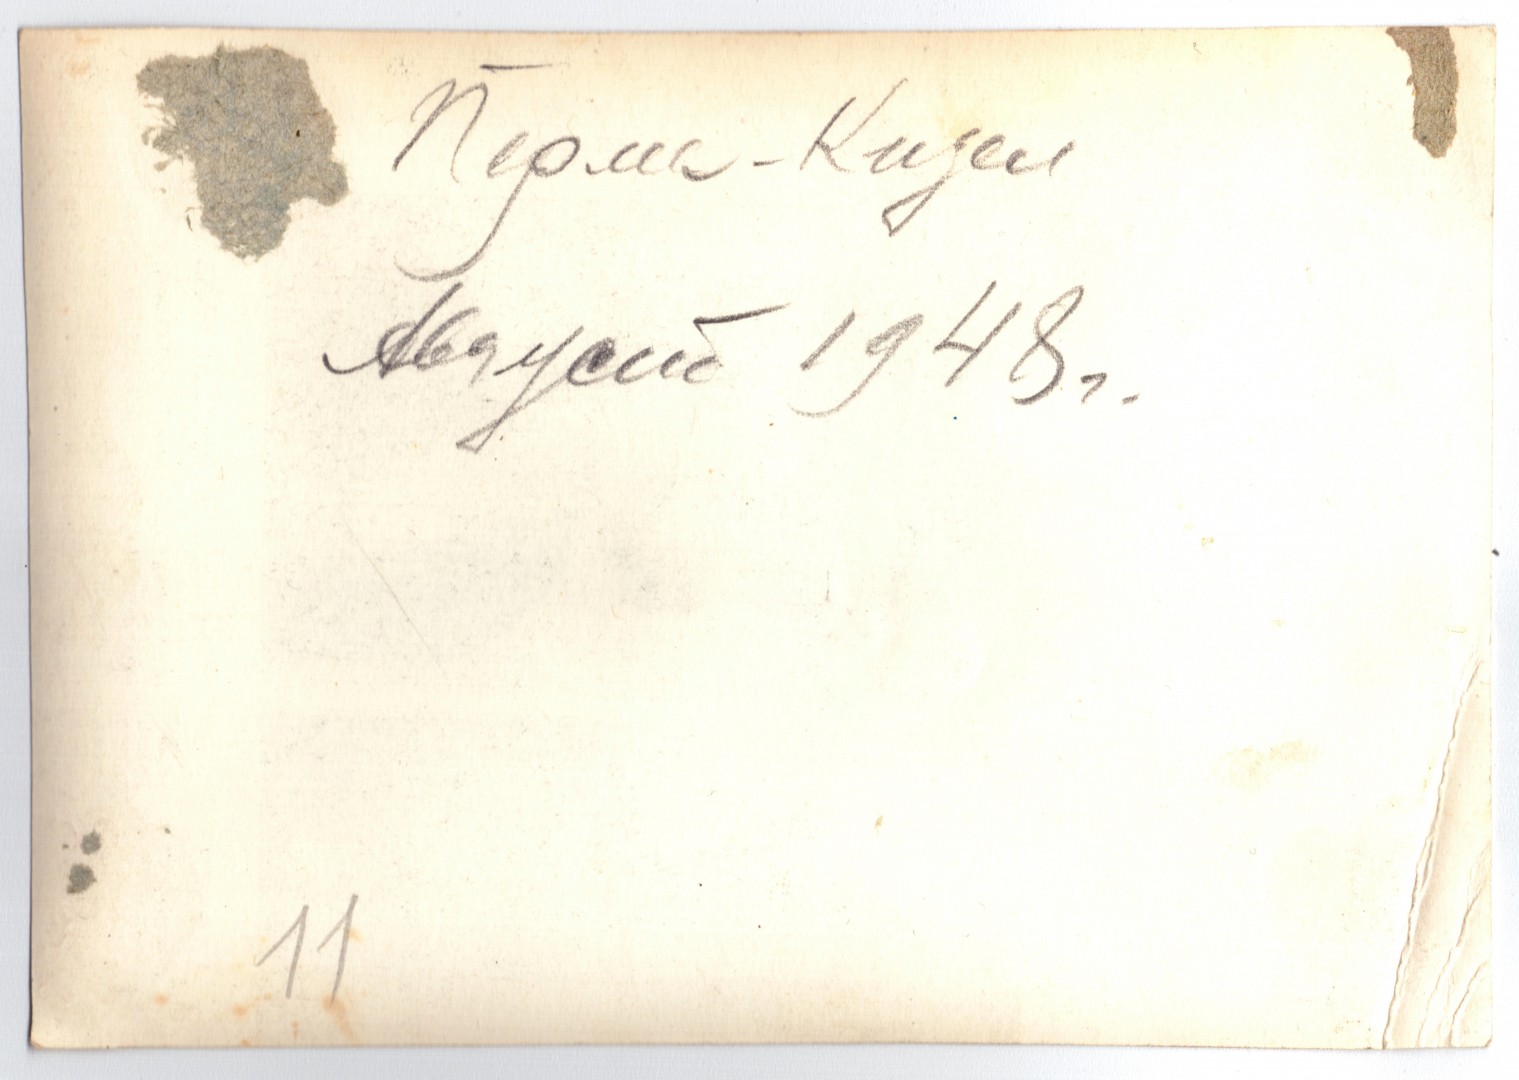 Пермь-Кизел
Август 1948г.
11